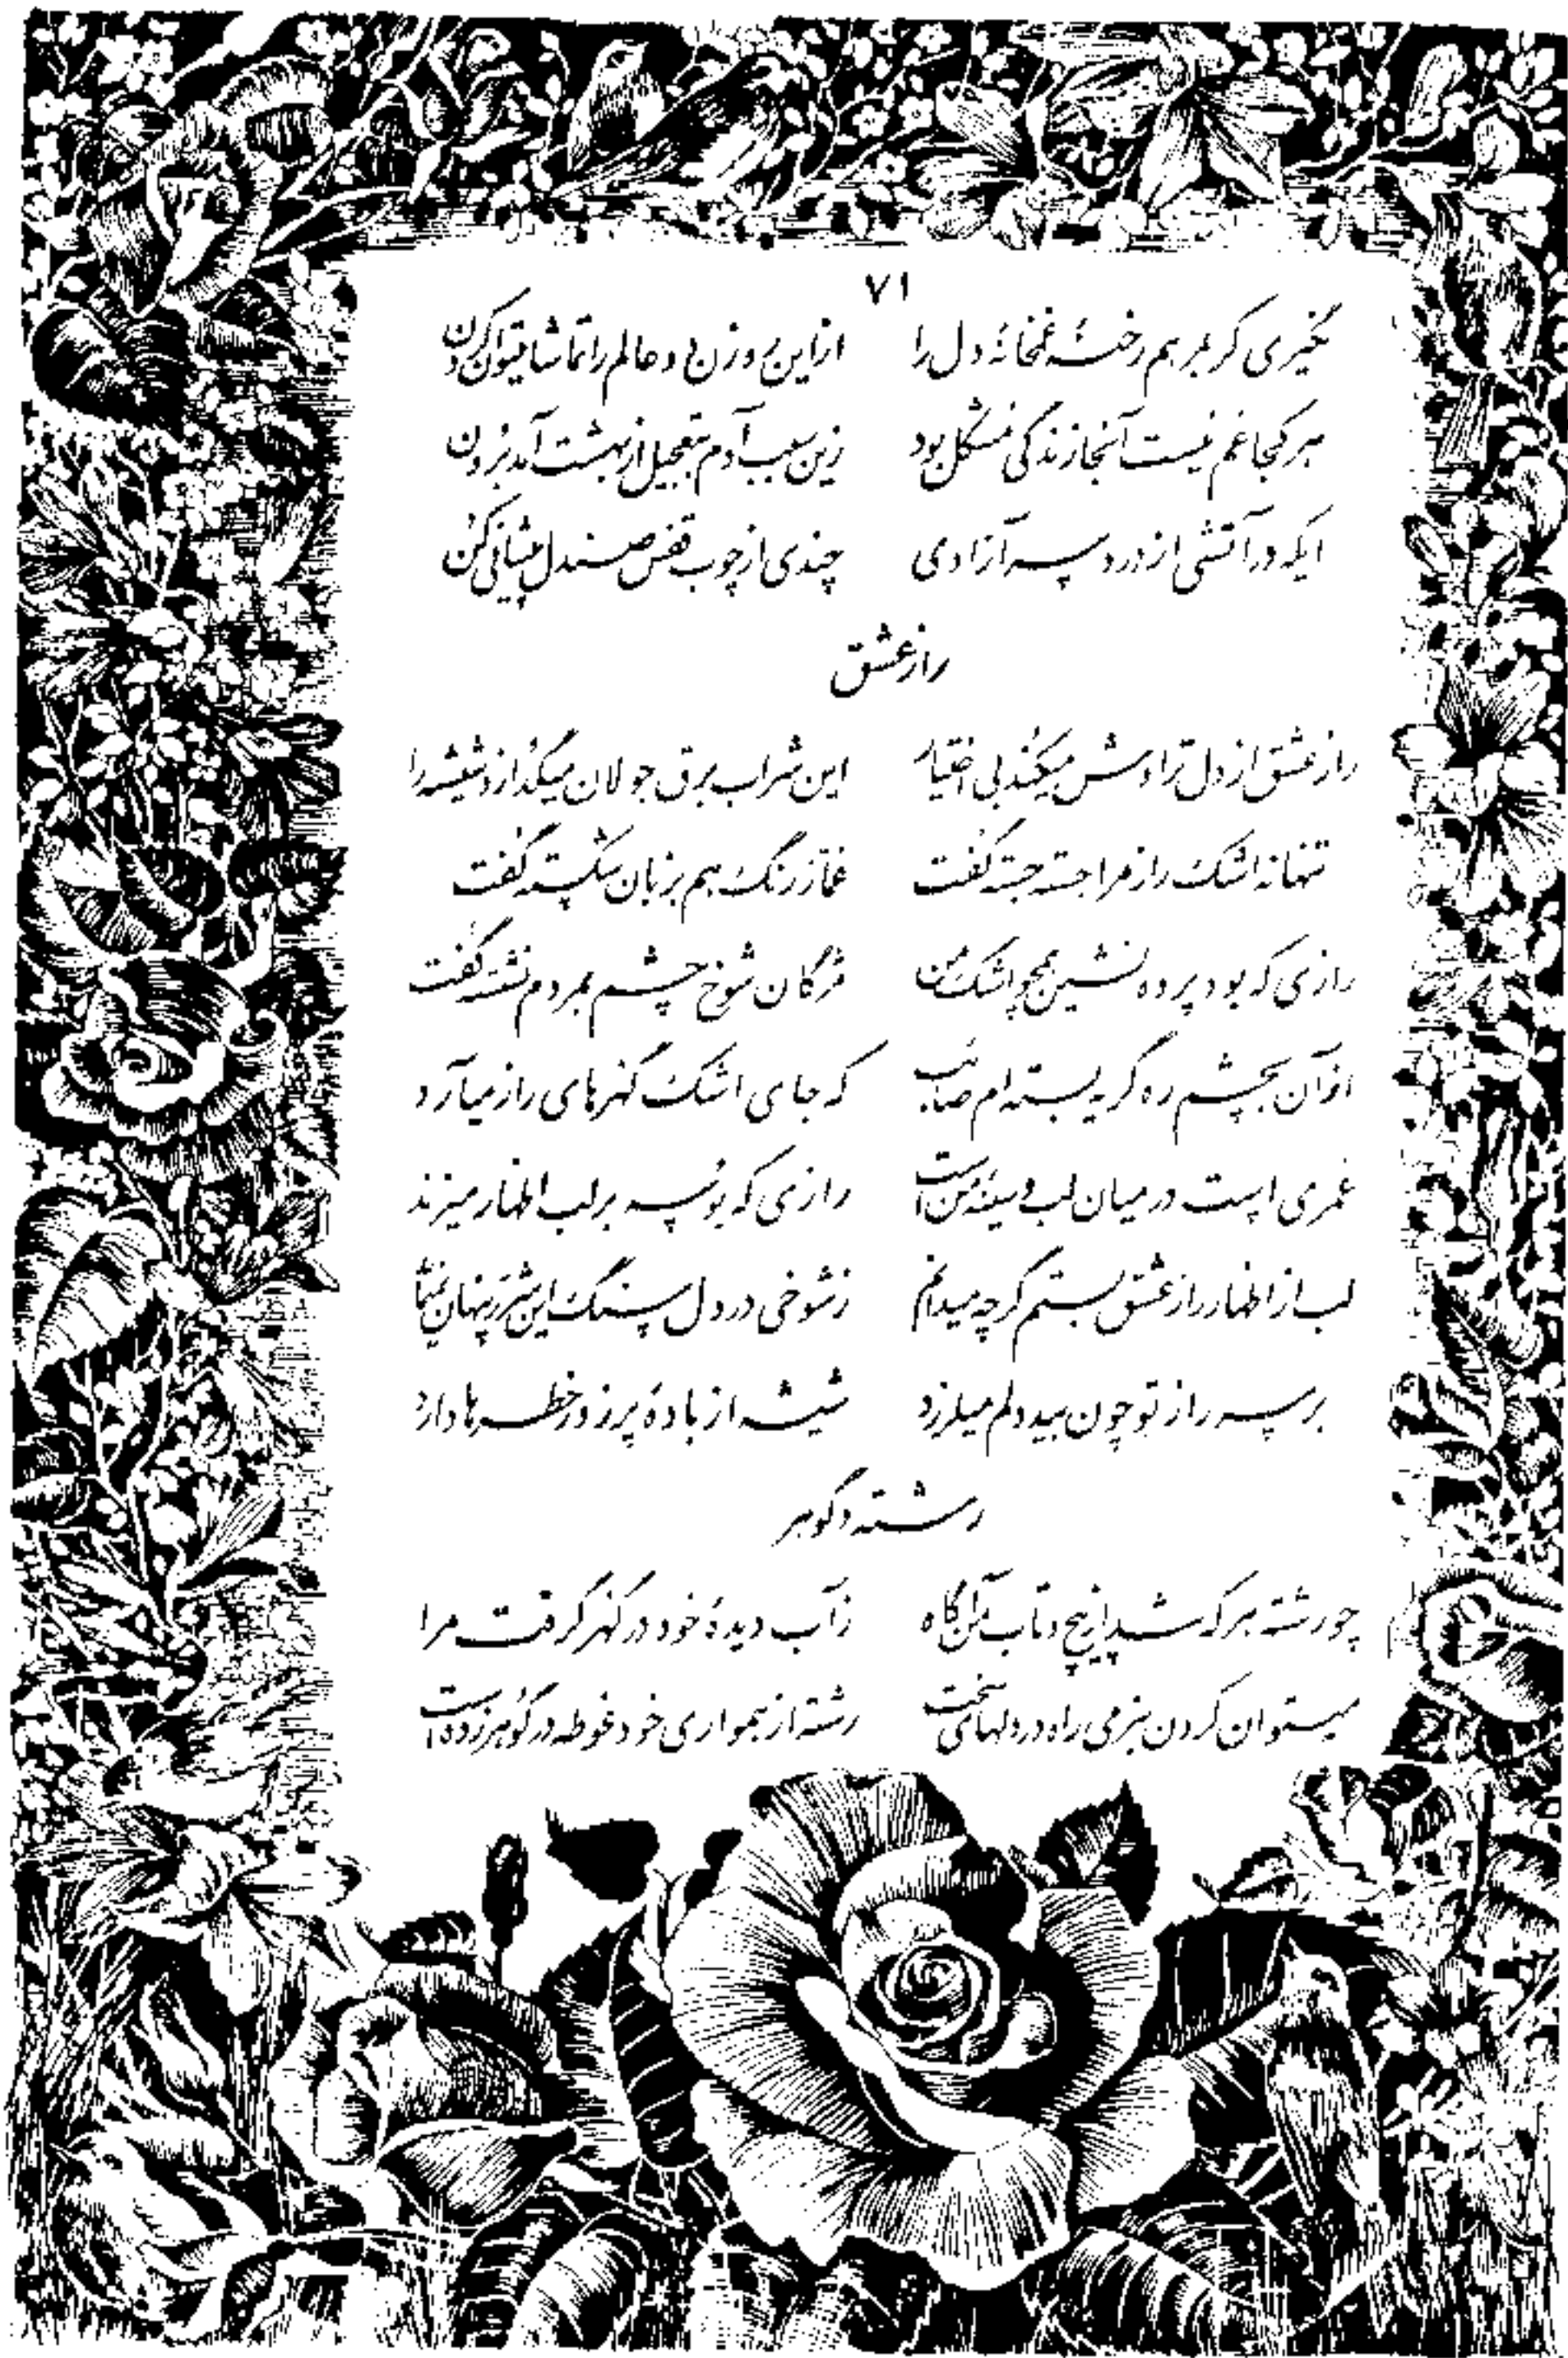 ۷۱
نگیری گر بهم رخنهٔ غمخانهٔ دل را از این روزن دو عالم را تماشا میتوان کردن
هر کجا غم نیست آنجا زندگی مشکل بود زین سبب آدم بتعجیل از بهشت آمد برون
ایکه در آتشی از درد سر آزادی چندی از چوب قفس صندل پیشانی کن
راز عشق
راز عشق از دل تراوش میکند بی اختیار این شراب برق جولان میگدازد شیشه را
تنها نه اشک راز مرا جسته جسته گفت غماز رنگ هم بزبان شکسته گفت
رازی که بود پرده نشین همچو اشک من مژگان شوخ چشم بمردم نشسته گفت
از آن بچشم ره گریه بسته ام صائب که جای اشک گهرهای راز میآرد
عمری است در میان لب و سینهٔ من است رازی که بوسه بر لب اظهار میزند
لب از اظهار راز عشق بستم گرچه میدانم ز شوخی در دل سنگ این شرر پنهان نمیماند
بر سر راز تو چون بید دلم میلرزد شیشه از بادهٔ پرزور خطرها دارد
رشته و گوهر
چو رشته هر که شد از پیچ و تاب من آگاه ز آب دیدهٔ خود در گهر گرفت مرا
میتوان کردن بنرمی راه در دلهای سخت رشته از همواری خود غوطه در گوهر زده است